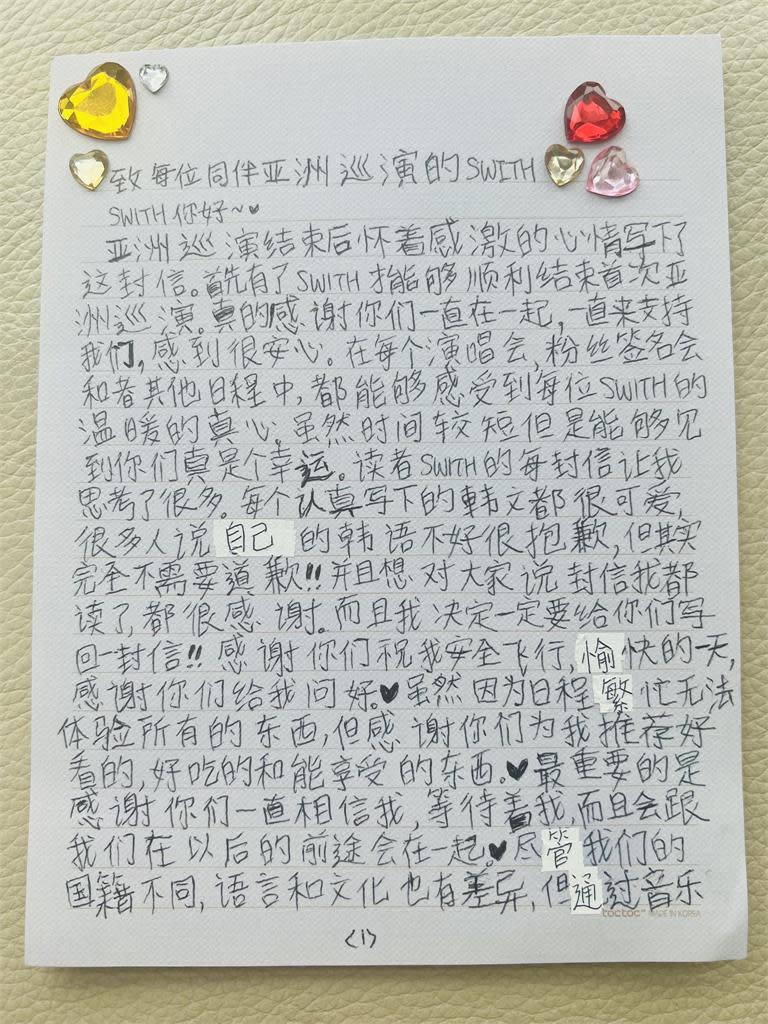 致每位同伴亚洲巡演的SWITH
SWITH你好~♥
亚洲巡演结束后怀着感激的心情写下了
这封信。首先有了SWITH才能够顺利结束首次亚
洲巡演。真的感谢你们一直在一起,一直来支持
我们,感到很安心。在每个演唱会,粉丝签名会
和者其他日程中,都能够感受到每位SWITH的
温暖的真心。虽然时间较短但是能够见
到你们真是个幸运。读者SWITH的每封信让我
思考了很多。每个认真写下的韩文都很可爱,
很多人说自己的韩语不好很抱歉,但其实
完全不需要道歉!!并且想对大家说封信我都
读了,都很感谢。而且我决定一定要给你们写
回一封信!!感谢你们祝我安全飞行,愉快的一天,
感谢你们给我问好。♥虽然因为日程繁忙无法
体验所有的东西,但感谢你们为我推荐好
看的,好吃的和能享受的东西。♥最重要的是
感谢你们一直相信我,等待着我,而且会跟
我们在以后的前途会在一起。♥尽管我们的
国籍不同,语言和文化也有差异,但通过音乐
toctoc™ MADE IN KOREA
<1>